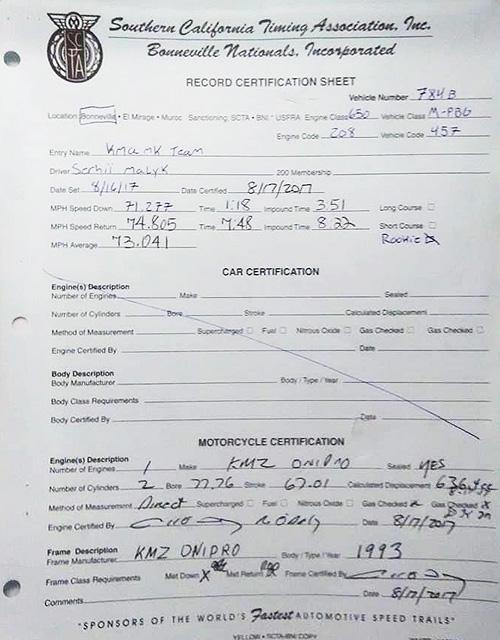 SCTA
Southern California Timing Association, Inc.
Bonneville Nationals, Incorporated
RECORD CERTIFICATION SHEET
Vehicle Number 784B
Location: Bonneville • El Mirage • Muroc Sanctioning: SCTA • BNI • USFRA Engine Class 650 Vehicle Class M-PBG
Engine Code 208 Vehicle Code 457
Entry Name KMZ MK Team
Driver Serhii Malyk 200 Membership
Date Set 8/16/17 Date Certified 8/17/2017
MPH Speed Down 71.277 Time 1:18 Impound Time 3:51 Long Course
MPH Speed Return 74.805 Time 7:48 Impound Time 8:22 Short Course
MPH Average 73.041 Rookie
CAR CERTIFICATION
Engine(s) Description
Number of Engines Make Sealed
Number of Cylinders Bore Stroke Calculated Displacement
Method of Measurement Supercharged Fuel Nitrous Oxide Gas Checked Gas Checked
Engine Certified By Date
Body Description
Body Manufacturer Body / Type / Year
Body Class Requirements
Body Certified By Date
MOTORCYCLE CERTIFICATION
Engine(s) Description
Number of Engines 1 Make KMZ DNIPRO Sealed YES
Number of Cylinders 2 Bore 77.76 Stroke 67.01 Calculated Displacement 636.
Method of Measurement Direct Supercharged Fuel Nitrous Oxide Gas Checked Gas Checked
Engine Certified By Date 8/17/2017
Frame Description
Frame Manufacturer KMZ DNIPRO Body / Type / Year 1993
Frame Class Requirements Met Down X Met Return Frame Certified By
Comments Date 8/17/2017
"SPONSORS OF THE WORLD'S Fastest AUTOMOTIVE SPEED TRAILS"
YELLOW • SCTA-BNI COPY